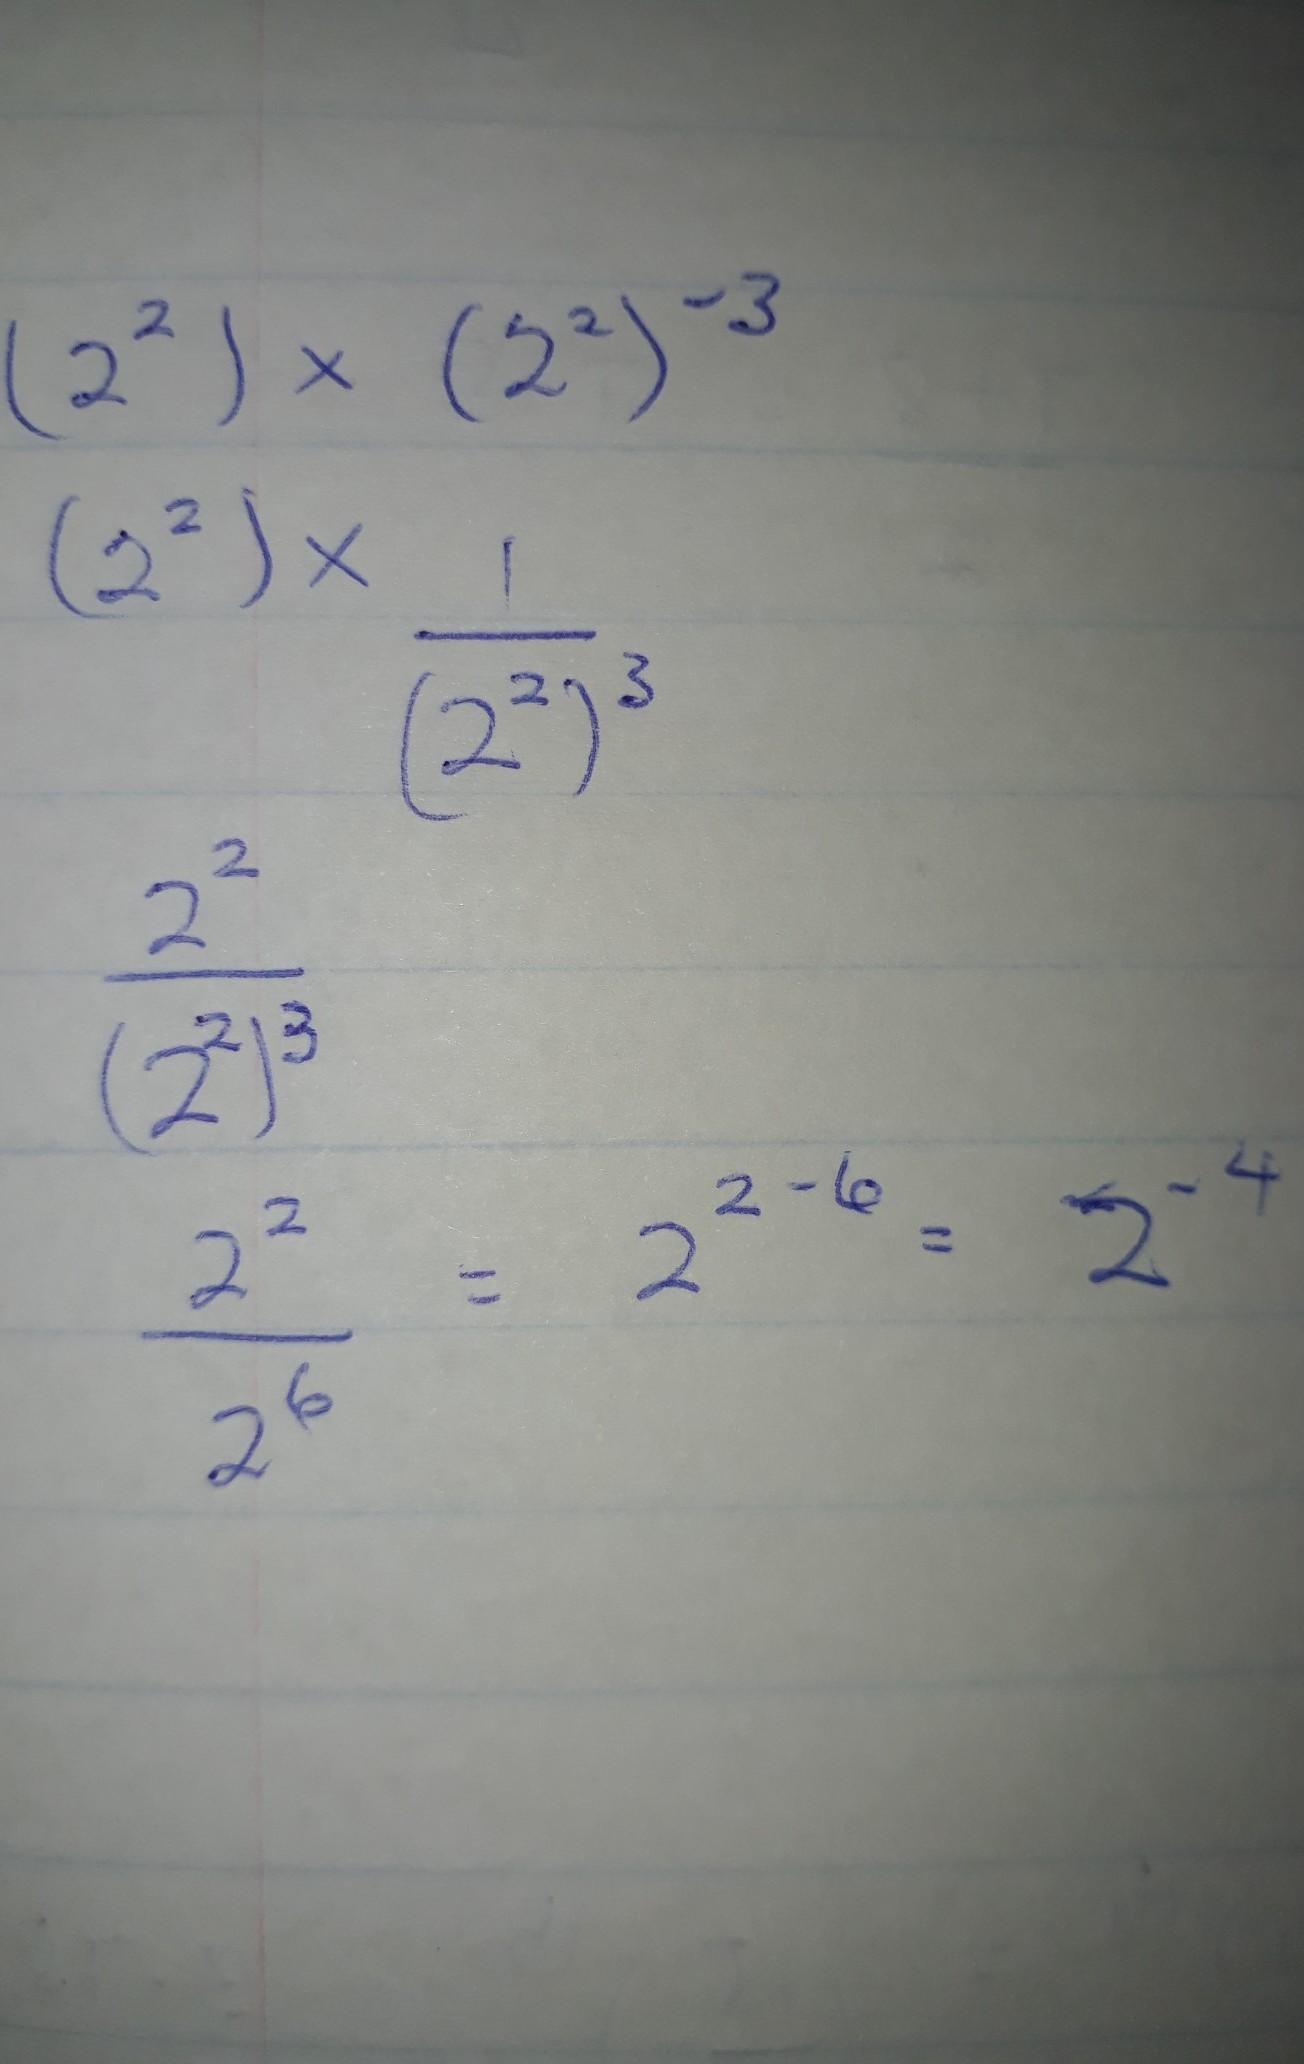 (2²) × (2²)⁻³
(2²) × 1
(2²)³
2²
(2²)³
2² = 2²⁻⁶ = 2⁻⁴
2⁶